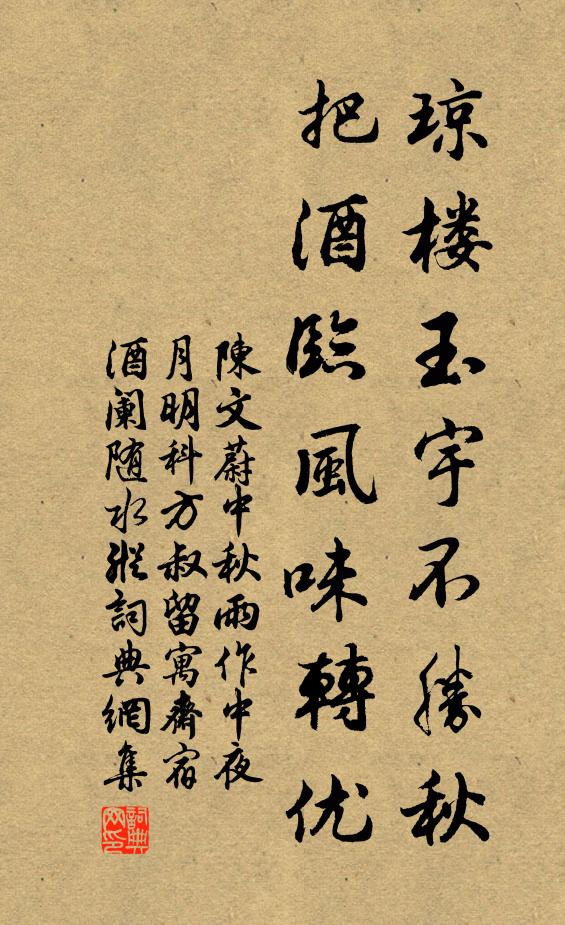 琼楼玉宇不勝秋
把酒臨風味轉优
陳文蔚中秋雨作中夜
月明科方叔留寓齋宿
酒阑随水縱詞典網集
詞典网印